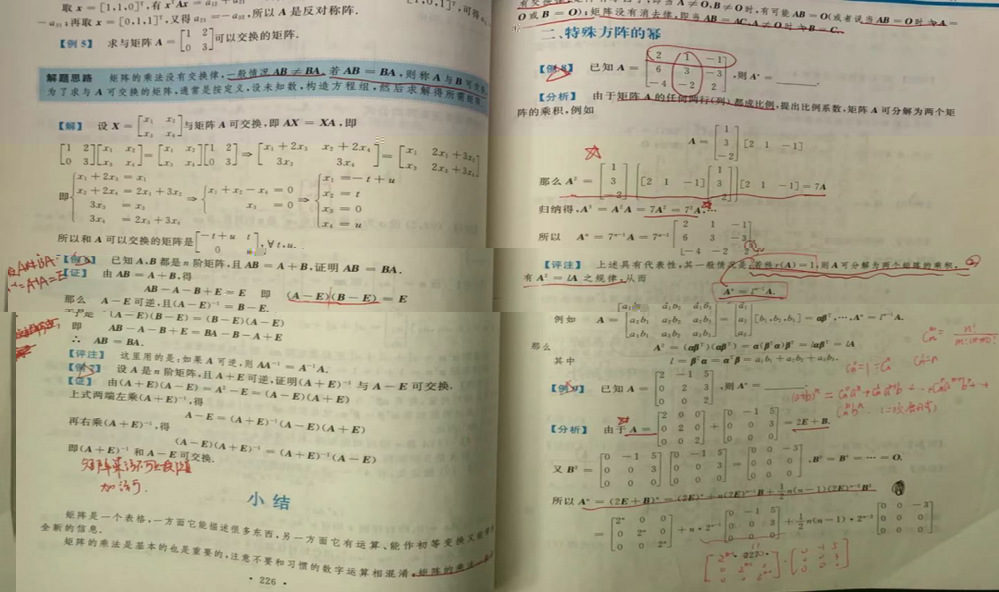 取 x = [1,1,0]ᵀ, 有 xᵀAx = a₁₂ + a₂₁
再取 x = [0,1,1]ᵀ, 又得 a₂₃ = −a₃₂, 所以 A 是反对称阵.
【例 5】 求与矩阵 A = [1 2; 0 3] 可以交换的矩阵.
解题思路 矩阵的乘法没有交换律, 一般情况 AB ≠ BA, 若 AB = BA, 则称 A 与 B 可交换.
为了求与 A 可交换的矩阵, 通常是按定义, 设未知数, 构造方程组, 然后求解得所需矩阵.
【解】 设 X = [x₁ x₂; x₃ x₄] 与矩阵 A 可交换, 即 AX = XA, 即
[1 2; 0 3][x₁ x₂; x₃ x₄] = [x₁ x₂; x₃ x₄][1 2; 0 3] ⇒ [x₁ + 2x₃ x₂ + 2x₄; 3x₃ 3x₄] = [x₁ 2x₁ + 3x₂; x₃ 2x₃ + 3x₄]
即 { x₁ + 2x₃ = x₁; x₂ + 2x₄ = 2x₁ + 3x₂; 3x₃ = x₃; 3x₄ = 2x₃ + 3x₄ ⇒ { x₁ + x₂ − x₄ = 0; x₃ = 0 ⇒ { x₁ = −t + u; x₂ = t; x₃ = 0; x₄ = u
所以和 A 可以交换的矩阵是 [−t + u t; 0 ], ∀t, u.
已知 A, B 都是 n 阶矩阵, 且 AB = A + B, 证明 AB = BA.
【证】 由 AB = A + B, 得
AB − A − B + E = E 即 (A − E)(B − E) = E
那么 A − E 可逆, 且 (A − E)⁻¹ = B − E.
(A − E)(B − E) = (B − E)(A − E)
即 AB − A − B + E = BA − B − A + E
∴ AB = BA.
【评注】 这里用的是: 如果 A 可逆, 则 AA⁻¹ = A⁻¹A.
【例 7】 设 A 是 n 阶矩阵, 且 A + E 可逆, 证明 (A + E)⁻¹ 与 A − E 可交换.
【证】 由 (A + E)(A − E) = A² − E = (A − E)(A + E)
上式两端左乘 (A + E)⁻¹, 得
A − E = (A + E)⁻¹(A − E)(A + E)
再右乘 (A + E)⁻¹, 得
(A − E)(A + E)⁻¹ = (A + E)⁻¹(A − E)
即 (A + E)⁻¹ 和 A − E 可交换.
小结
矩阵是一个表格, 一方面它能描述很多东西, 另一方面它有运算、能作初等变换又能
全新的信息.
矩阵的乘法是基本的也是重要的, 注意不要和习惯的数字运算相混淆, 矩阵的乘法
• 226 •
O 或 B = O); 矩阵没有消去律, 即当 AB = AC, A ≠ O 时 ⇏ B = C.
二、特殊方阵的幂
【例 8】 已知 A = [2 1 −1; 6 3 −3; −4 −2 2], 则 Aⁿ = ______.
【分析】 由于矩阵 A 的任何两行(列)都成比例, 提出比例系数, 矩阵 A 可分解为两个矩
阵的乘积, 例如
A = [1; 3; −2][2 1 −1]
那么 A² = [1; 3; −2][2 1 −1][1; 3; −2][2 1 −1] = 7A
归纳得, A³ = A²A = 7A² = 7²A, …
所以 Aⁿ = 7ⁿ⁻¹A = 7ⁿ⁻¹[2 1 −1; 6 3 −3; −4 −2 2]
【评注】 上述具有代表性, 其一般情况是: 若秩 r(A) = 1, 则 A 可分解为两个矩阵的乘积,
有 A² = lA 之规律, 从而
Aⁿ = lⁿ⁻¹A.
例如 A = [a₁b₁ a₁b₂ a₁b₃; a₂b₁ a₂b₂ a₂b₃; a₃b₁ a₃b₂ a₃b₃] = [a₁; a₂; a₃][b₁, b₂, b₃] = αβᵀ, …, Aⁿ = lⁿ⁻¹A.
那么 A² = (αβᵀ)(αβᵀ) = α(βᵀα)βᵀ = lαβᵀ = lA
其中 l = βᵀα = αᵀβ = a₁b₁ + a₂b₂ + a₃b₃.
已知 A = [2 −1 5; 0 2 3; 0 0 2], 则 Aⁿ = ______.
【分析】 由于 A = [2 0 0; 0 2 0; 0 0 2] + [0 −1 5; 0 0 3; 0 0 0] = 2E + B.
又 B² = [0 −1 5; 0 0 3; 0 0 0][0 −1 5; 0 0 3; 0 0 0] = [0 0 −3; 0 0 0; 0 0 0], B³ = B⁴ = … = O.
所以 Aⁿ = (2E + B)ⁿ = (2E)ⁿ + n(2E)ⁿ⁻¹B + ½n(n − 1)(2E)ⁿ⁻²B²
= [2ⁿ 0 0; 0 2ⁿ 0; 0 0 2ⁿ] + n · 2ⁿ⁻¹[0 −1 5; 0 0 3; 0 0 0] + ½n(n − 1) · 2ⁿ⁻²[0 0 −3; 0 0 0; 0 0 0]
• 227 •